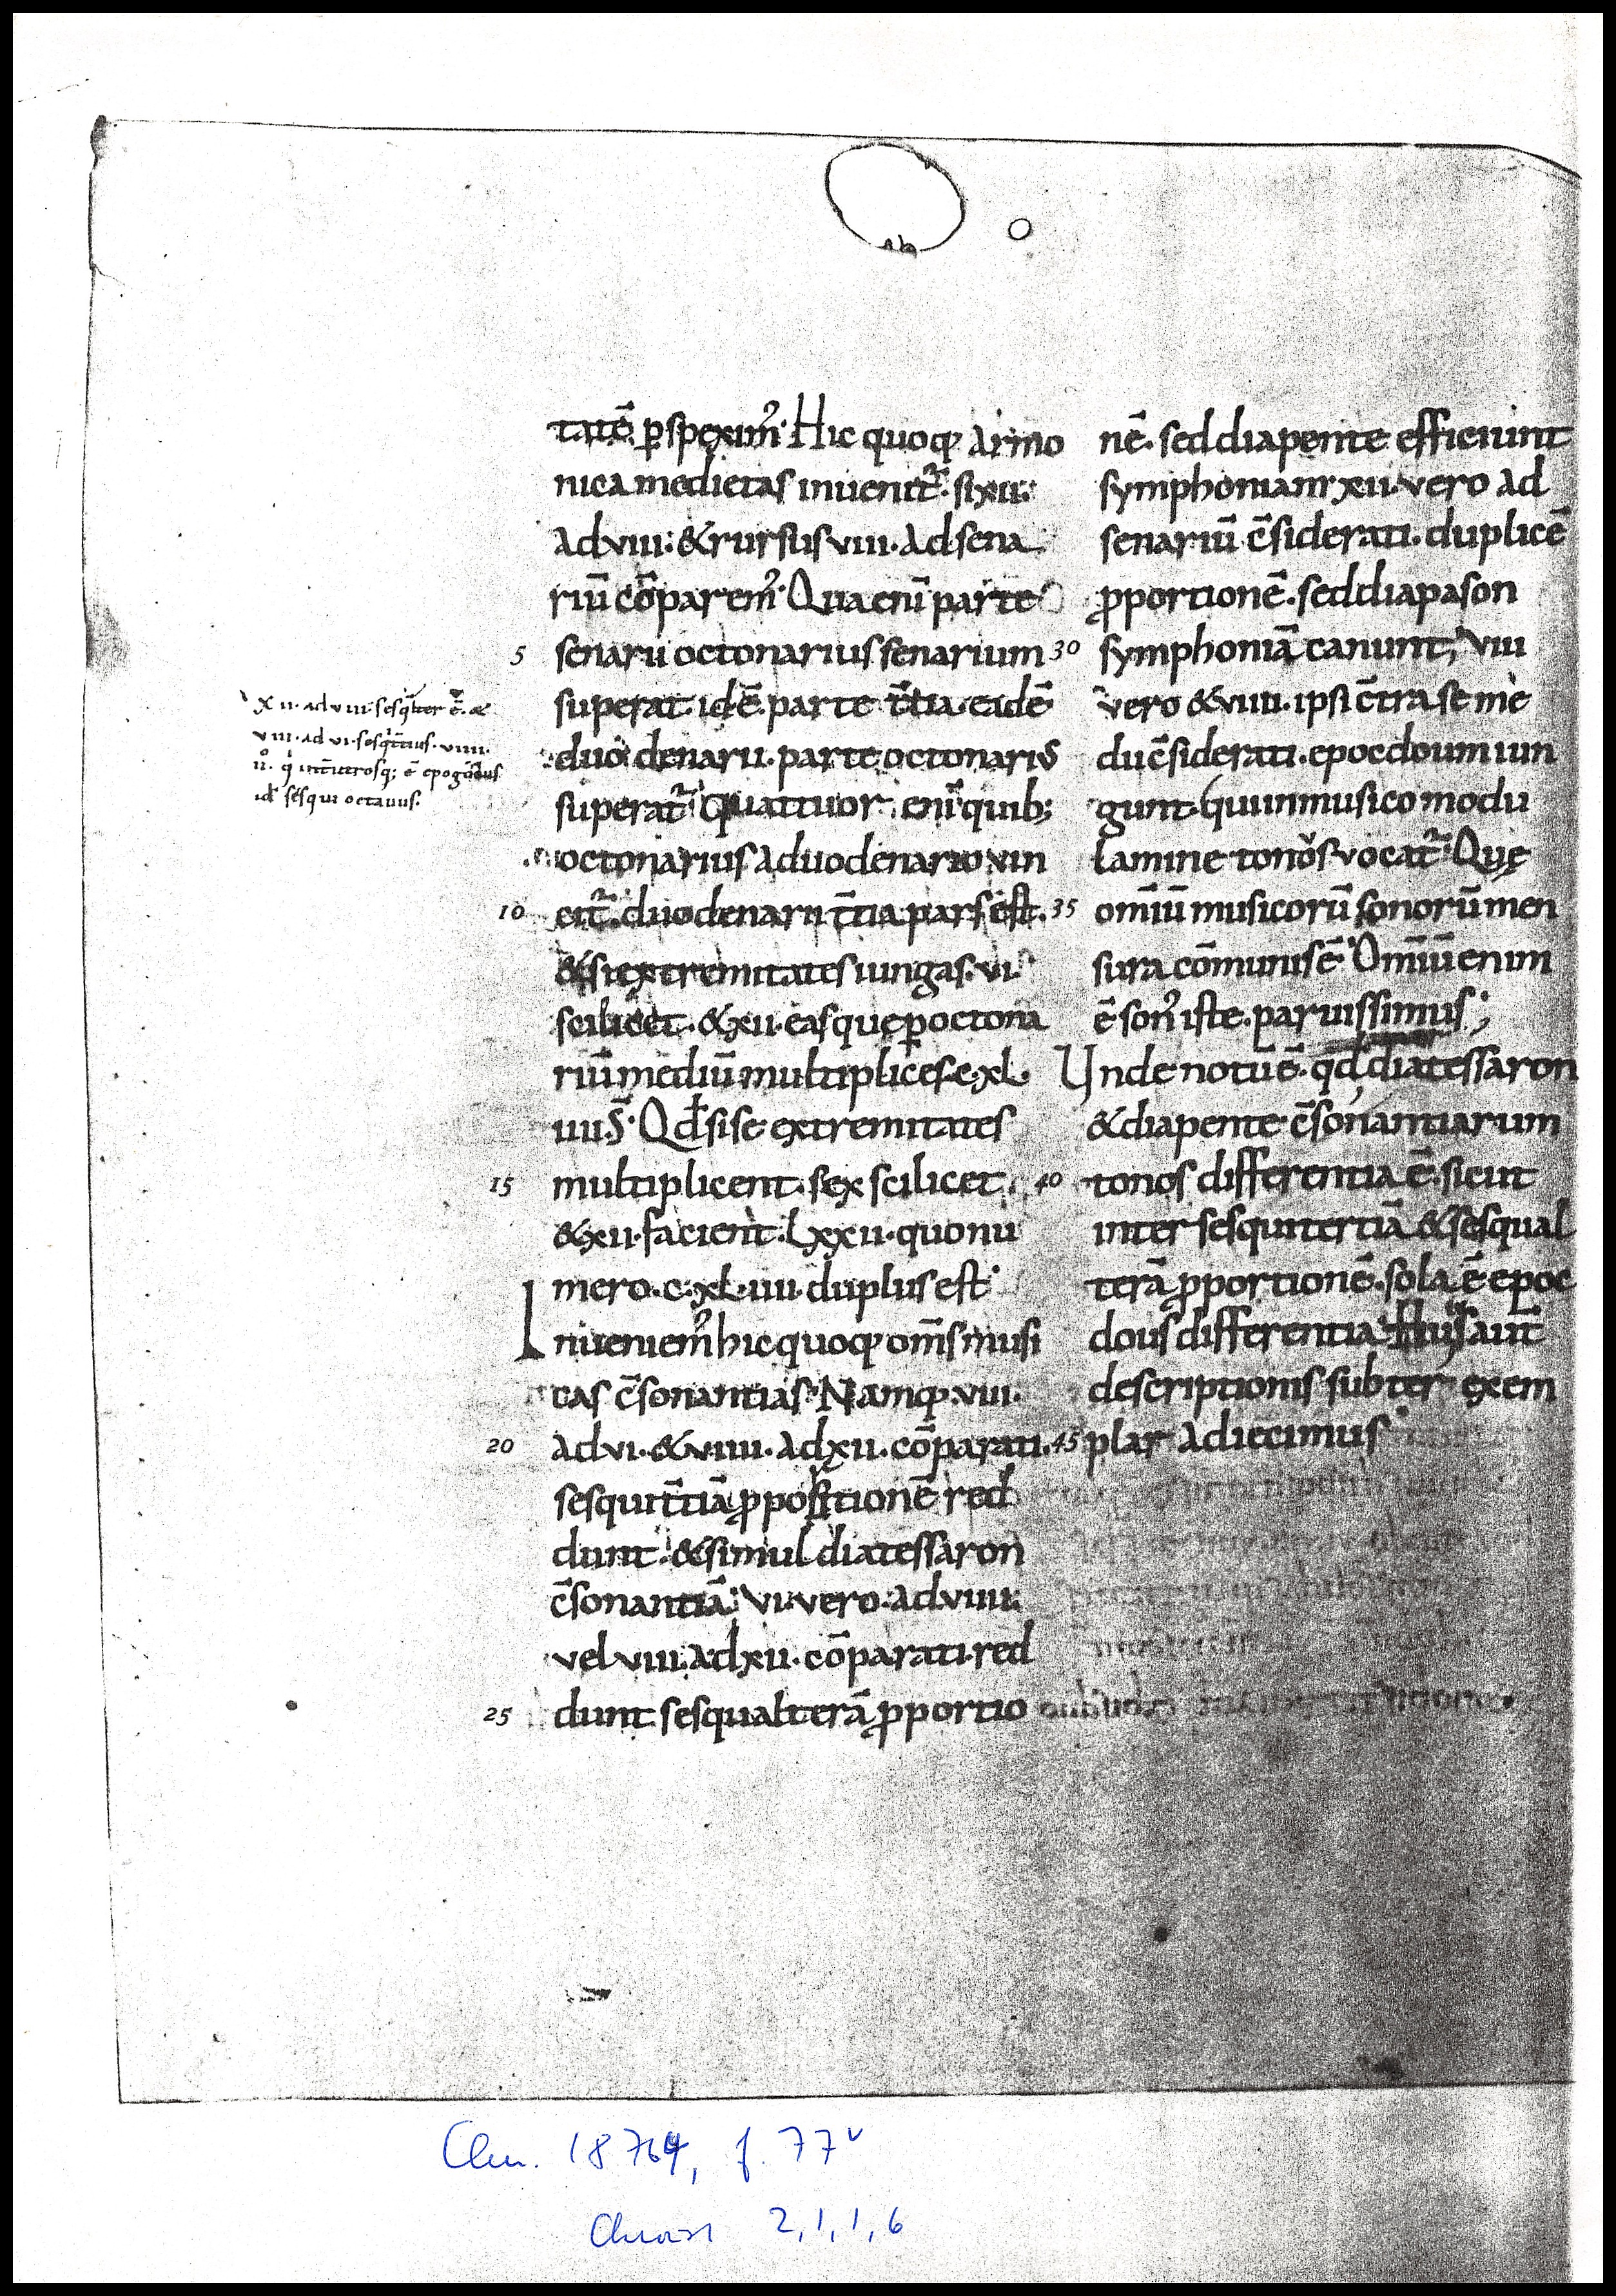 tatē ꝑspeximꝰ. Hic quoqꝫ armo
nica medietas inuenit᷑. si xii.
ad viii. & rursus viii. ad sena
riū cōparemꝰ. Qua eni parte
5 senarii octonarius senarium
superat. idē. parte t̄tia. eadē
duodenarii. parte octonariꝰ
superat᷑. quattuor. eni quib;
octonarius a duodenario vin
10 cit᷑. duodenarii t̄tia pars est.
& si extremitates iungas. vi.
scilicet. & xii. easque ꝑ octona
riū mediū multiplices. c. xl.
iiii. s̄. Qd̄ si se extremitates
15 multiplicent. sex scilicet.
& xii. facient. lxxii. quo nu
mero. c. xl. iiii. duplus est.
Inueniemꝰ hic quoqꝫ om̄s musi
cas c̄sonantias. Namqꝫ. viii.
20 ad vi. & viiii. ad xii. cōparati.
sesquit̄tiā ꝓportionē red
dunt. & simul diatessaron
c̄sonantiā. vi. vero. ad viiii.
vel viii. ad xii. cōparati. red
25 dunt sesqualterā ꝓportio
nē. sed diapente efficiunt
symphoniam. xii. vero ad
senariū c̄siderati. duplicē
ꝓportionē. sed diapason
30 symphoniā canunt; viii
vero & viiii. ipsi c̄tra se me
dii c̄siderati. epocdoum iun
gunt. qui in musico modu
lamine tonos vocat᷑. Quę
35 omīū musicorū sonorū men
sura cōmunis ē. Omīū enim
ē sonꝰ iste. paruissimus;
Unde notū ē. qd̄ diatessaron
& diapente c̄sonantiarum
40 tonos differentia ē. sicut
inter sesquitertiā & sesqual
terā ꝓportionē. sola ē epoc
dous differentia. Huius aut̄
descriptionis subter exem
45 plar adiecimus.
xii. ad viii. sesq̄lter ē. &
viii. ad vi. sesq̄t̄tius. viiii.
ů. q̇ int̄ utrosq; ē epogdous
id ē sesqui octauus.
Clm. 18764, f. 77v
2,1,1,6